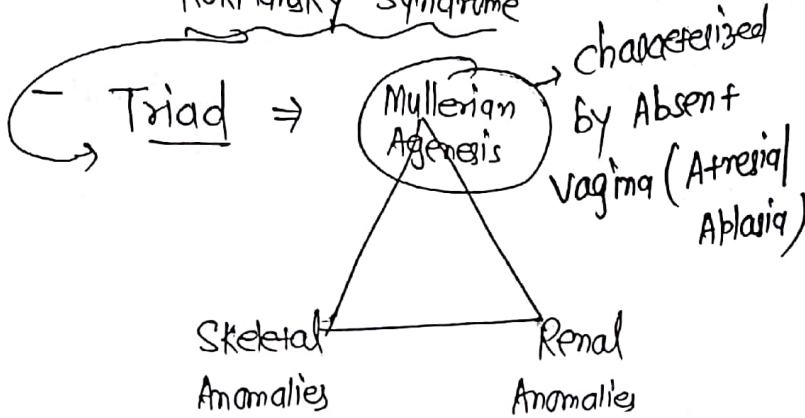 Syndrome
Triad ⇒ Mullerian Agenesis
→ characterized
by Absent
vagina (Atresia/
Aplasia)
Skeletal Anomalies
Renal Anomalies